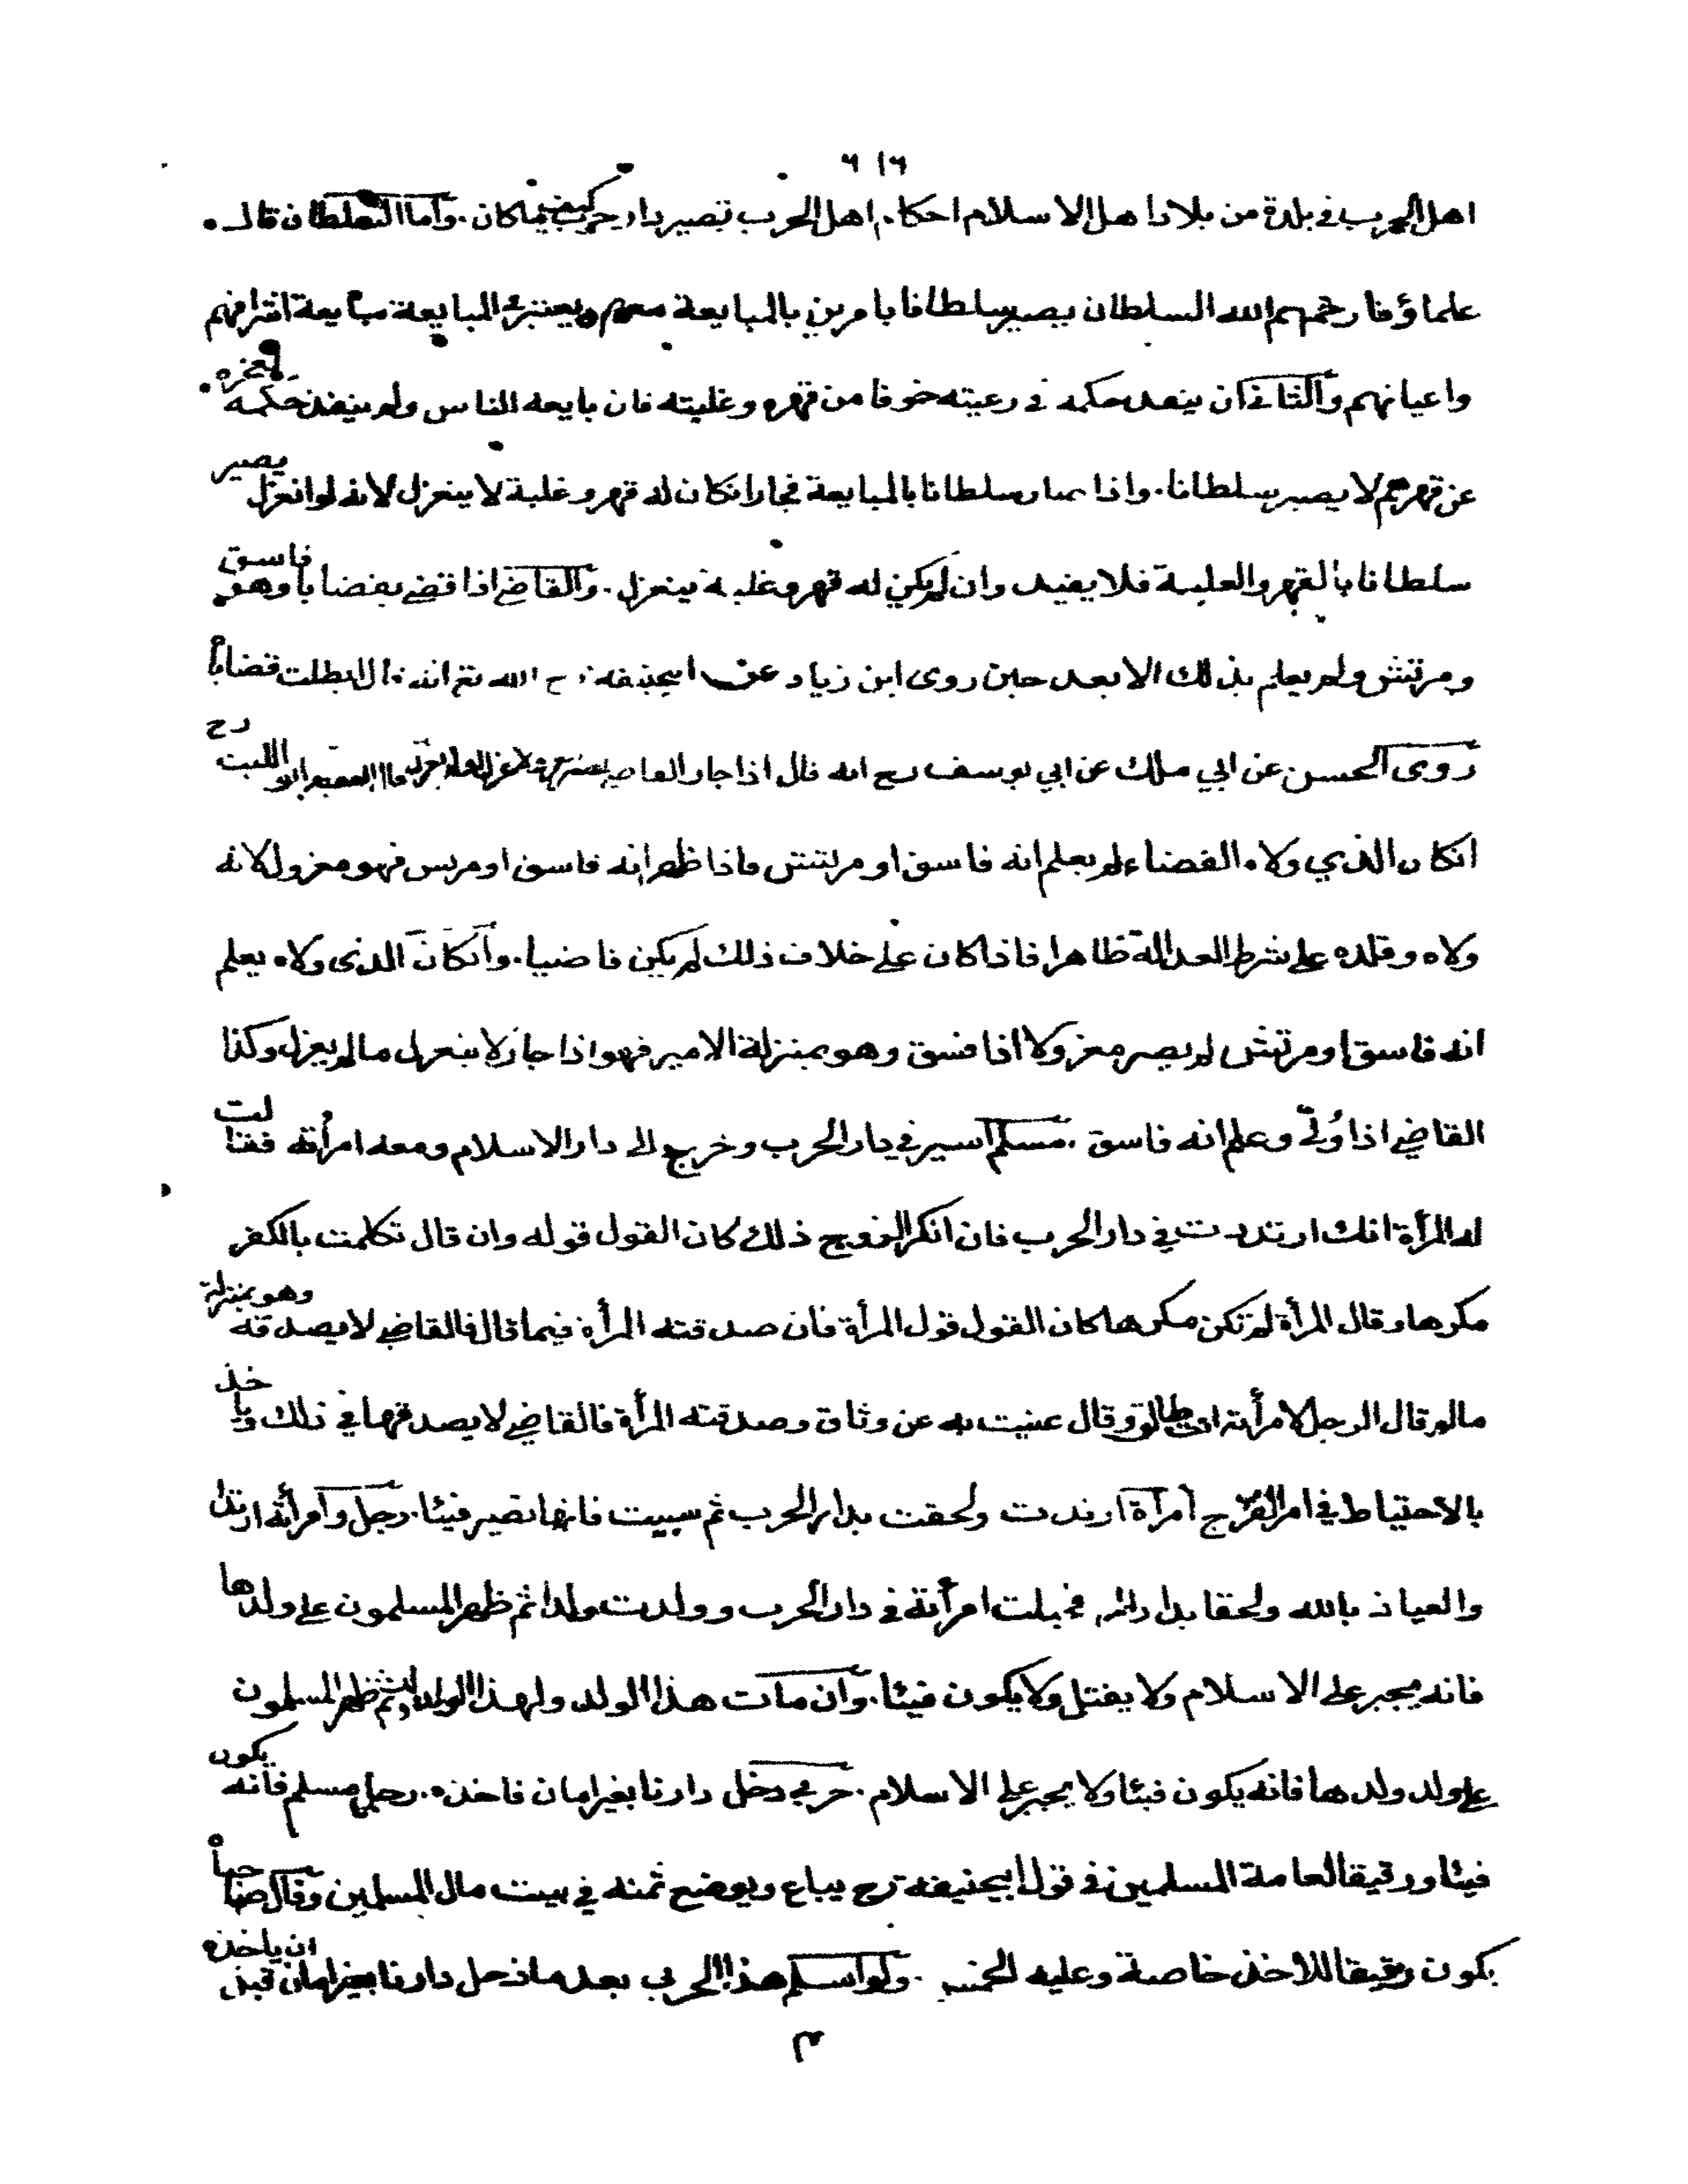 ٦١٦
اهل الحرب في بلدة من بلاد اهل الاسلام احكام اهل الحرب تصير دار حرب كيفما كان. واما السلطان قال
علماؤنا رحمهم الله السلطان يصير سلطانا بامرين بالمبايعة معهم ويعتبر في المبايعة مبايعة اشرافهم
واعيانهم والثاني ان ينفذ حكمه في رعيته خوفا من قهره وغلبته فان بايعه الناس ولم ينفذ حكمه لعجزه
عن قهرهم لا يصير سلطانا. واذا صار سلطانا بالمبايعة فجار انكان له قهر وغلبة لا ينعزل لانه لو انعزل يصير
سلطانا بالقهر والغلبة فلا يفيد وان لم يكن له قهر وغلبة ينعزل. والقاضي اذا قضى بقضايا وهو فاسق
ومرتش ولم يعلم بذلك الا بعد حين روى ابن زياد عن ابيحنيفة رح الله انه قال ابطلت قضاياه
روى الحسن عن ابي ملك عن ابي يوسف رح انه قال اذا جار القاضي الفقيه ابو الليث رح
انكان الذي ولاه القضاء لم يعلم انه فاسق او مرتش فاذا ظهر انه فاسق او مرتش فهو معزول لانه
ولاه وقلده على شرط العدالة ظاهرا فاذا كان على خلاف ذلك لم يكن قاضيا. وانكان الذى ولاه يعلم
انه فاسق او مرتش لم يصر معزولا اذا فسق وهو بمنزلة الامير فهو اذا جار لا ينعزل ما لم يعزل وكذا
القاضي اذا وُلّي وعلم انه فاسق. مسلم اسير في دار الحرب وخرج الى دار الاسلام ومعه امرأته فقالت
له المرأة انك ارتددت في دار الحرب فان انكر الزوج ذلك كان القول قوله وان قال تكلمت بالكفر
مكرها وقال المرأة لم تكن مكرها كان القول قول المرأة فان صدقته المرأة فيما قال فالقاضي لا يصدقه وهو بمنزلة
مالو قال الرجل لامرأته انت طالق وقال عنيت به عن وثاق وصدقته المرأة فالقاضي لا يصدقهما في ذلك ويأخذ
بالاحتياط في امر الفرج امرأة ارتدت ولحقت بدار الحرب ثم سبيت فانها تصير فيئا. رجل وامرأته ارتدا
والعياذ بالله ولحقا بدار الحرب فحبلت امرأته في دار الحرب وولدت ولدا ثم ظهر المسلمون على ولدها
فانه يجبر على الاسلام ولا يقتل ولا يكون فيئا. وان مات هذا الولد ولهذا الولد ولد ثم ظهر المسلمون
على ولد ولدها فانه يكون فيئا ولا يجبر على الاسلام. حربي دخل دارنا بغير امان فاخذه رجل مسلم فانه يكون
فيئا ورقيقا لعامة المسلمين في قول ابيحنيفة رح يباع ويوضع ثمنه في بيت مال المسلمين وقال صاحباه
يكون رقيقا للاخذ خاصة وعليه الخمس. ولو اسلم هذا الحربي بعد ما دخل دارنا بغير امان قبل ان ياخذه